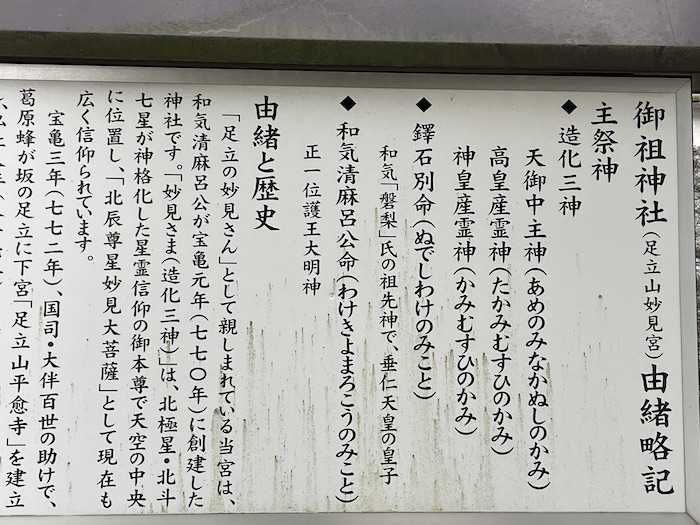 御祖神社(足立山妙見宮)由緒略記
主祭神
◆造化三神
天御中主神(あめのみなかぬしのかみ)
高皇産霊神(たかみむすひのかみ)
神皇産霊神(かみむすひのかみ)
◆鐸石別命(ぬでしわけのみこと)
和気「磐梨」氏の祖先神で、垂仁天皇の皇子
◆和気清麻呂公命(わけきよまろこうのみこと)
正一位護王大明神
由緒と歴史
「足立の妙見さん」として親しまれている当宮は、
和気清麻呂公が宝亀元年(七七〇年)に創建した
神社です。「妙見さま(造化三神)」は、北極星・北斗
七星が神格化した星霊信仰の御本尊で天空の中央
に位置し、「北辰尊星妙見大菩薩」として現在も
広く信仰られています。
宝亀三年(七七二年)、国司・大伴百世の助けで、
葛原蜂が坂の足立に下宮「足立山平愈寺」を建立